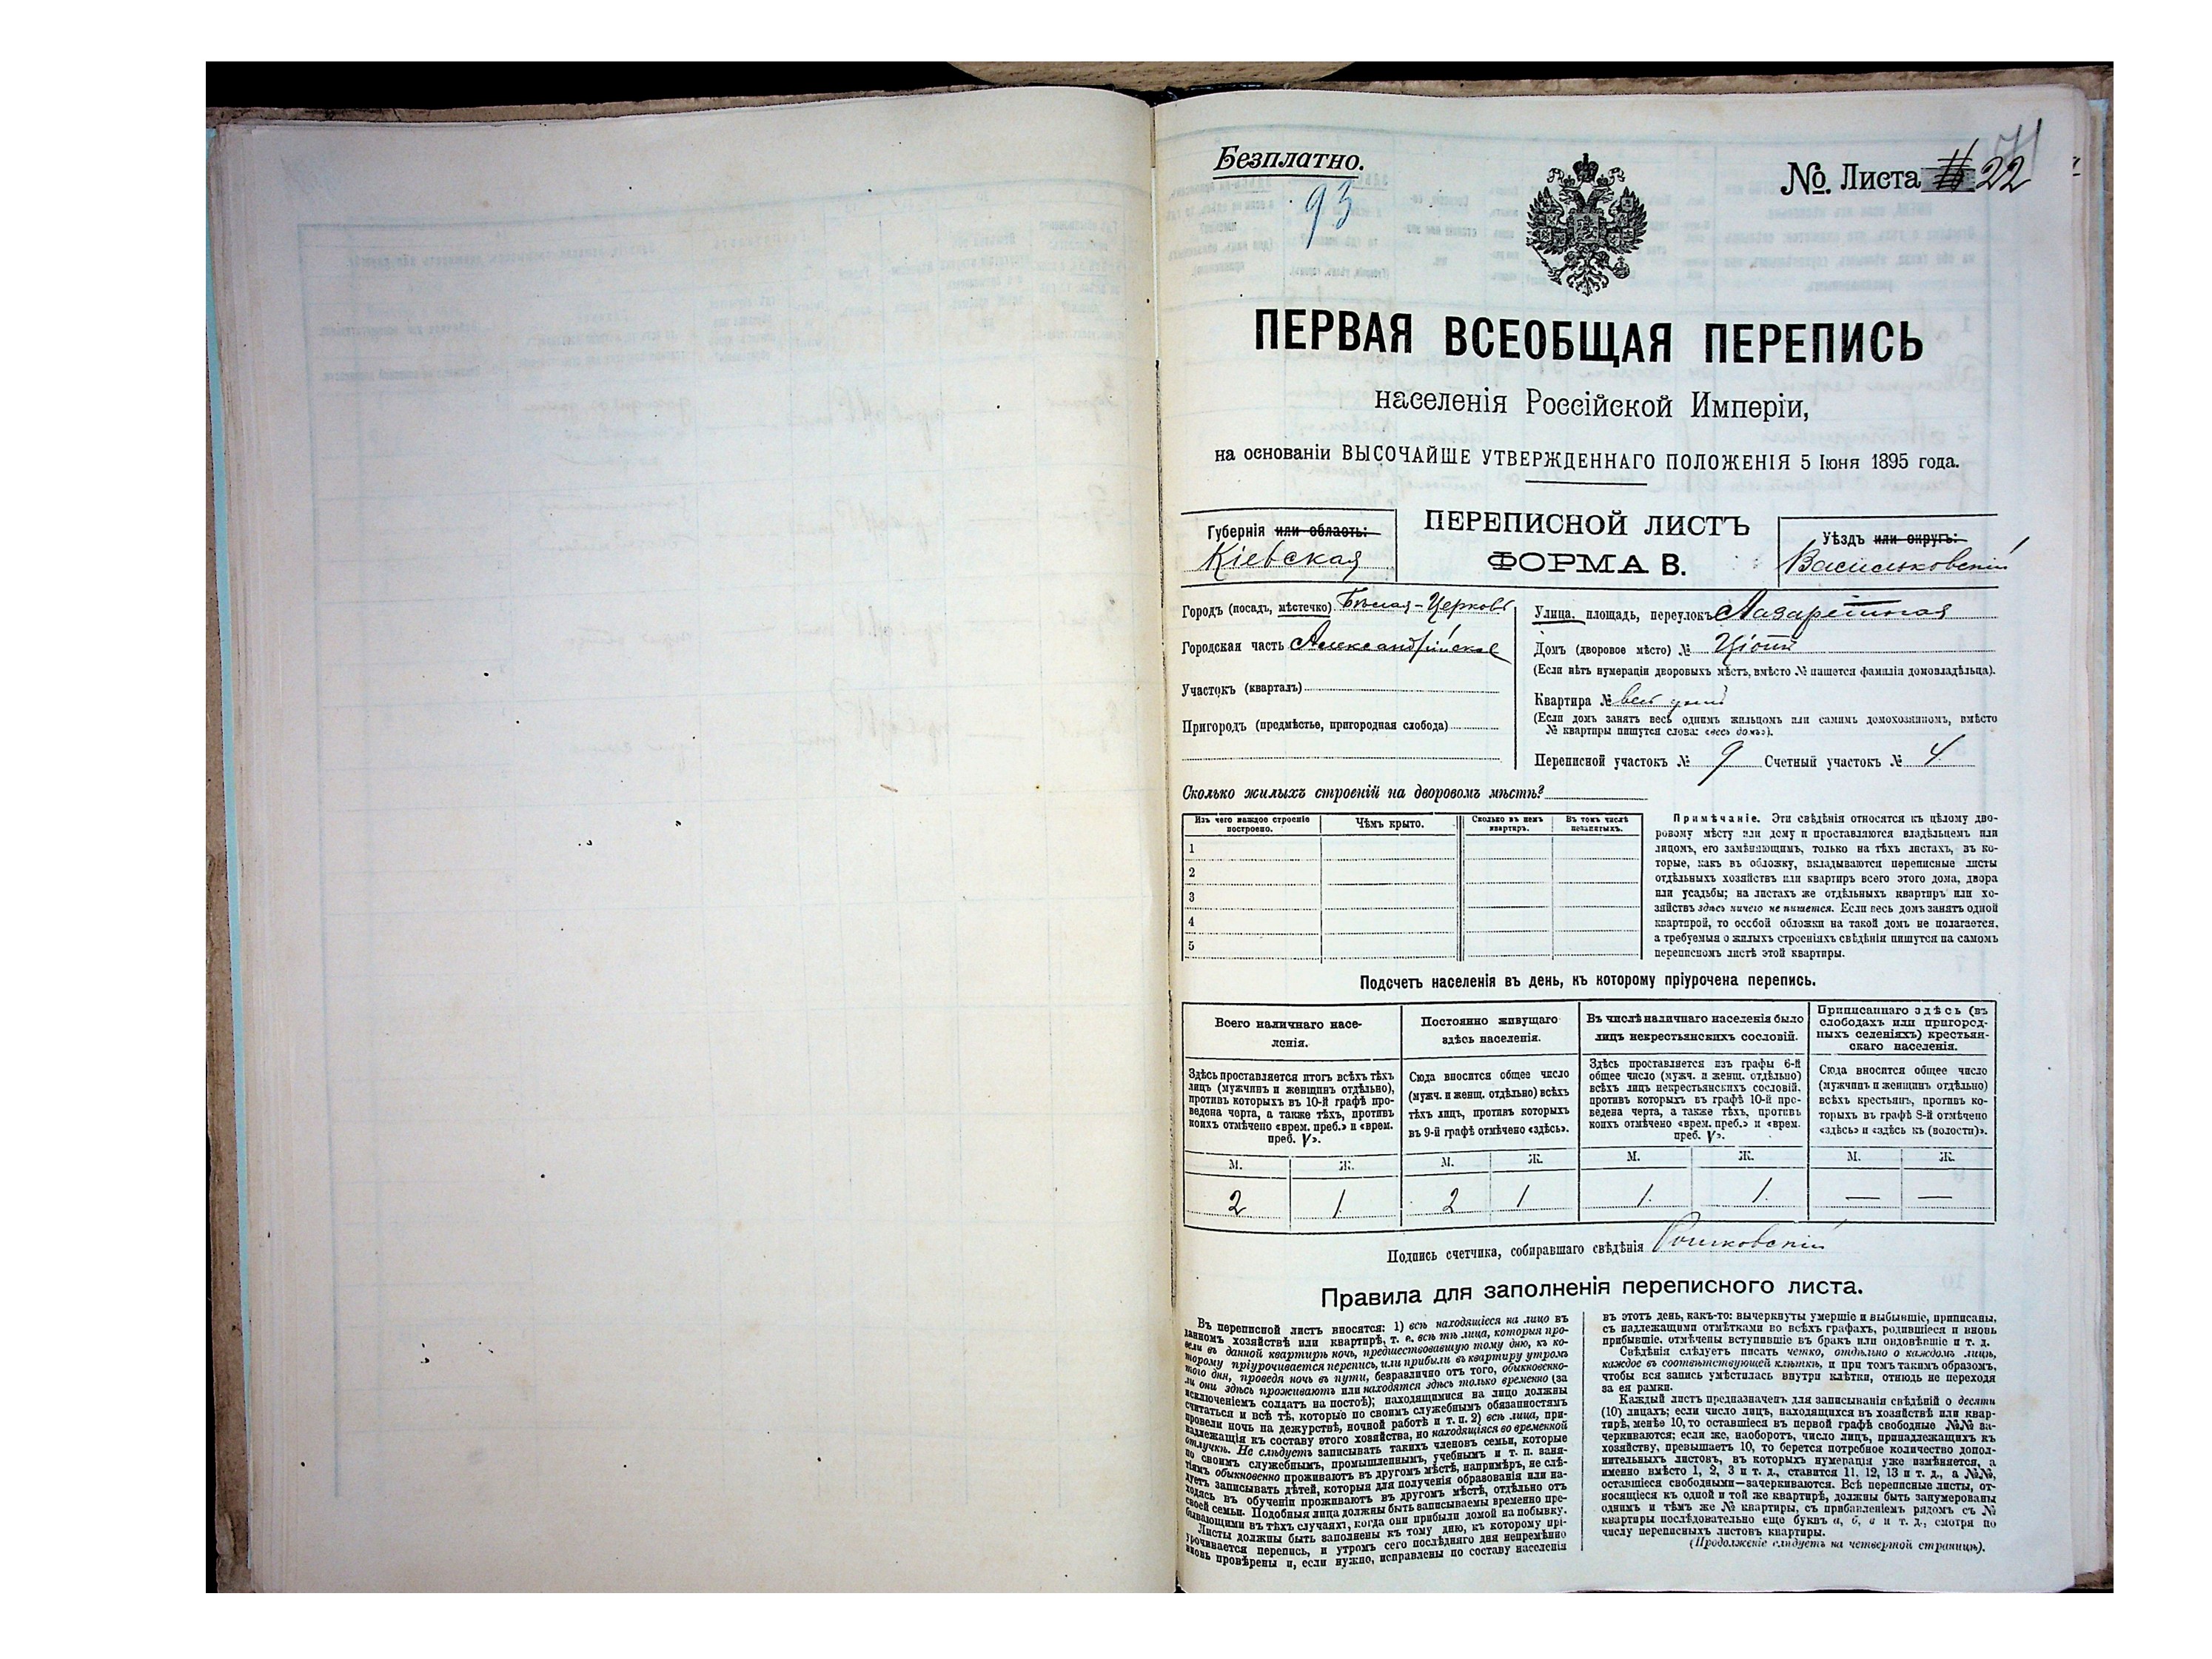 Безплатно.
93
№. Листа 22
71
ПЕРВАЯ ВСЕОБЩАЯ ПЕРЕПИСЬ
населенія Россійской Имперіи,
на основаніи ВЫСОЧАЙШЕ УТВЕРЖДЕННАГО ПОЛОЖЕНІЯ 5 Іюня 1895 года.
Губернія или область:
Кіевская
ПЕРЕПИСНОЙ ЛИСТЪ
ФОРМА В.
Уѣздъ или округъ:
Васильковскій
Городъ (посадъ, мѣстечко) Бѣлая-Церковь
Городская часть Александрійская
Участокъ (кварталъ)
Пригородъ (предмѣстье, пригородная слобода)
Улица, площадь, переулокъ Лазаретная
Домъ (дворовое мѣсто) №
(Если нѣтъ нумераціи дворовыхъ мѣстъ, вмѣсто № пишется фамилія домовладѣльца).
Квартира №
(Если домъ занятъ весь однимъ жильцомъ или самимъ домохозяиномъ, вмѣсто
№ квартиры пишутся слова: «весь домъ»).
Переписной участокъ № 9 Счетный участокъ № 4
Сколько жилыхъ строеній на дворовомъ мѣстѣ?
Изъ чего каждое строеніе построено.
Чѣмъ крыто.
Сколько въ немъ квартиръ.
Въ томъ числѣ незанятыхъ.
1
2
3
4
5
Примѣчаніе. Эти свѣдѣнія относятся къ цѣлому дво-
ровому мѣсту или дому и проставляются владѣльцемъ или
лицомъ, его замѣняющимъ, только на тѣхъ листахъ, въ ко-
торые, какъ въ обложку, вкладываются переписные листы
отдѣльныхъ хозяйствъ или квартиръ всего этого дома, двора
или усадьбы; на листахъ же отдѣльныхъ квартиръ или хо-
зяйствъ здѣсь ничего не пишется. Если весь домъ занятъ одной
квартирой, то особой обложки на такой домъ не полагается,
а требуемыя о жилыхъ строеніяхъ свѣдѣнія пишутся на самомъ
переписномъ листѣ этой квартиры.
Подсчетъ населенія въ день, къ которому пріурочена перепись.
Всего наличнаго насе-
ленія.
Постоянно живущаго
здѣсь населенія.
Въ числѣ наличнаго населенія было
лицъ некрестьянскихъ сословій.
Приписаннаго здѣсь (въ
слободахъ или пригород-
ныхъ селеніяхъ) крестьян-
скаго населенія.
Здѣсь проставляется итогъ всѣхъ тѣхъ
лицъ (мужчинъ и женщинъ отдѣльно),
противъ которыхъ въ 10-й графѣ про-
ведена черта, а также тѣхъ, противъ
коихъ отмѣчено «врем. преб.» и «врем.
преб. V».
Сюда вносится общее число
(мужч. и женщ. отдѣльно) всѣхъ
тѣхъ лицъ, противъ которыхъ
въ 9-й графѣ отмѣчено «здѣсь».
Здѣсь проставляется изъ графы 6-й
общее число (мужч. и женщ. отдѣльно)
всѣхъ лицъ некрестьянскихъ сословій,
противъ которыхъ въ графѣ 10-й про-
ведена черта, а также тѣхъ, противъ
коихъ отмѣчено «врем. преб.» и «врем.
преб. V».
Сюда вносится общее число
(мужчинъ и женщинъ отдѣльно)
всѣхъ крестьянъ, противъ ко-
торыхъ въ графѣ 8-й отмѣчено
«здѣсь» и «здѣсь къ (волости)».
М. Ж. М. Ж. М. Ж. М. Ж.
2 1 2 1 1 1 — —
Подпись счетчика, собиравшаго свѣдѣнія
Правила для заполненія переписного листа.
Въ переписной листъ вносятся: 1) всѣ находящіеся на лицо въ
данномъ хозяйствѣ или квартирѣ, т. е. всѣ тѣ лица, которыя про-
вели въ данной квартирѣ ночь, предшествовавшую тому дню, къ ко-
торому пріурочивается перепись, или прибыли въ квартиру утромъ
того дня, проведя ночь въ пути, безразлично отъ того, обыкновенно-
ли они здѣсь проживаютъ или находятся здѣсь только временно (за
исключеніемъ солдатъ на постоѣ); находящимися на лицо должны
считаться и всѣ тѣ, которые по своимъ служебнымъ обязанностямъ
провели ночь на дежурствѣ, ночной работѣ и т. п. 2) всѣ лица, при-
надлежащія къ составу этого хозяйства, но находящіяся во временной
отлучкѣ. Не слѣдуетъ записывать такихъ членовъ семьи, которые
по своимъ служебнымъ, промышленнымъ, учебнымъ и т. п. заня-
тіямъ обыкновенно проживаютъ въ другомъ мѣстѣ, напримѣръ, не слѣ-
дуетъ записывать дѣтей, которыя для полученія образованія или на-
ходясь въ обученіи проживаютъ въ другомъ мѣстѣ, отдѣльно отъ
своей семьи. Подобныя лица должны быть записываемы временно пре-
бывающими въ тѣхъ случаяхъ, когда они прибыли домой на побывку.
Листы должны быть заполнены къ тому дню, къ которому прі-
урочивается перепись, и утромъ сего послѣдняго дня непремѣнно
вновь провѣрены и, если нужно, исправлены по составу населенія
въ этотъ день, какъ-то: вычеркнуты умершіе и выбывшіе, приписаны,
съ надлежащими отмѣтками во всѣхъ графахъ, родившіеся и вновь
прибывшіе, отмѣчены вступившіе въ бракъ или овдовѣвшіе и т. д.
Свѣдѣнія слѣдуетъ писать четко, отдѣльно о каждомъ лицѣ,
каждое въ соотвѣтствующей клѣткѣ, и при томъ такимъ образомъ,
чтобы вся запись умѣстилась внутри клѣтки, отнюдь не переходя
за ея рамки.
Каждый листъ предназначенъ для записыванія свѣдѣній о десяти
(10) лицахъ; если число лицъ, находящихся въ хозяйствѣ или квар-
тирѣ, менѣе 10, то оставшіеся въ первой графѣ свободные №№ за-
черкиваются; если же, наоборотъ, число лицъ, принадлежащихъ къ
хозяйству, превышаетъ 10, то берется потребное количество допол-
нительныхъ листовъ, въ которыхъ нумерація уже измѣняется, а
именно вмѣсто 1, 2, 3 и т. д., ставится 11, 12, 13 и т. д., а №№,
оставшіеся свободными—зачеркиваются. Всѣ переписные листы, от-
носящіеся къ одной и той же квартирѣ, должны быть занумерованы
однимъ и тѣмъ же № квартиры, съ прибавленіемъ рядомъ съ №
квартиры послѣдовательно еще буквъ а, б, в и т. д., смотря по
числу переписныхъ листовъ квартиры.
(Продолженіе слѣдуетъ на четвертой страницѣ).